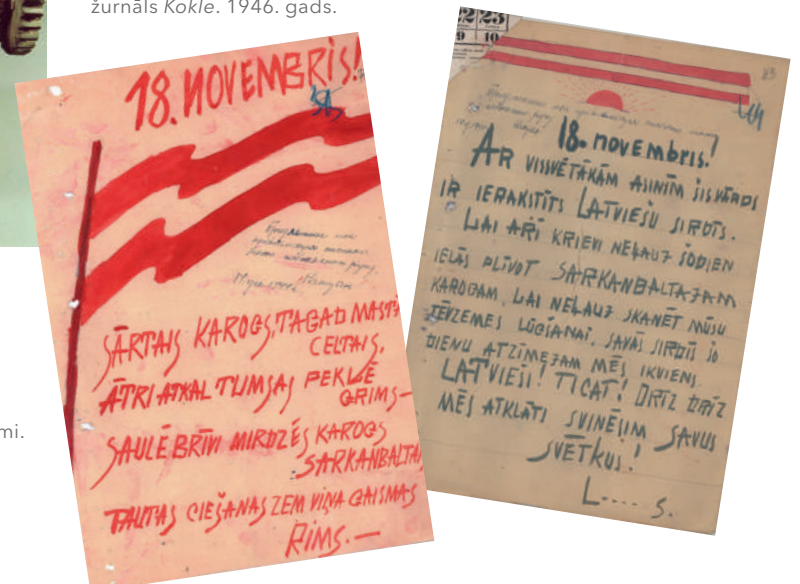 žurnāls Kokle. 1946. gads.
18. NOVEMBRIS!
SĀRTAIS KAROGS, TAGAD MASTĀ
CELTAIS,
ĀTRI ATKAL TUMSAS PEKLĒ
GRIMS—
SAULĒ BRĪVI MIRDZĒS KAROGS
SARKANBALTAIS
TAUTAS CIEŠANAS ZEM VIŅA GAISMAS
RIMS.—
mi.
22 23
9 10
83
18. novembris!
AR VISSVĒTĀKĀM ASINĪM ŠIS VĀRDS
IR IERAKSTĪTS LATVIEŠU SIRDĪS.
LAI ARĪ KRIEVI NEĻAUJ ŠODIEN
IELĀS PLĪVOT SARKANBALTAJAM
KAROGAM, LAI NEĻAUJ SKANĒT MŪSU
TĒVZEMES LŪGŠANAI, SAVĀS SIRDĪS ŠO
DIENU ATZĪMĒJAM MĒS IKVIENS.
LATVIEŠI! TICAT! DRĪZ DRĪZ
MĒS ATKLĀTI SVINĒSIM SAVUS
SVĒTKUS!
L---- S.